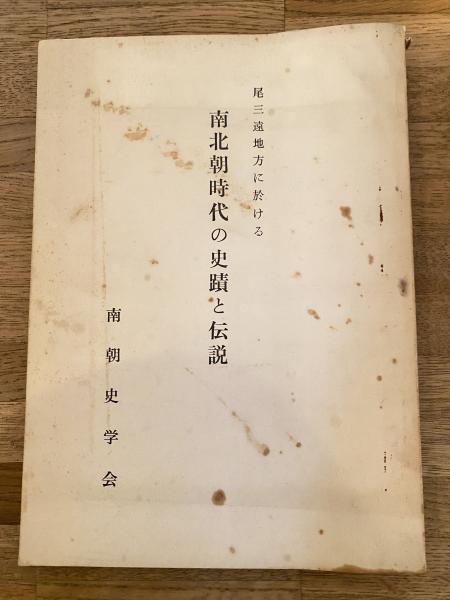 尾三遠地方に於ける
南北朝時代の史蹟と伝説
南朝史学会